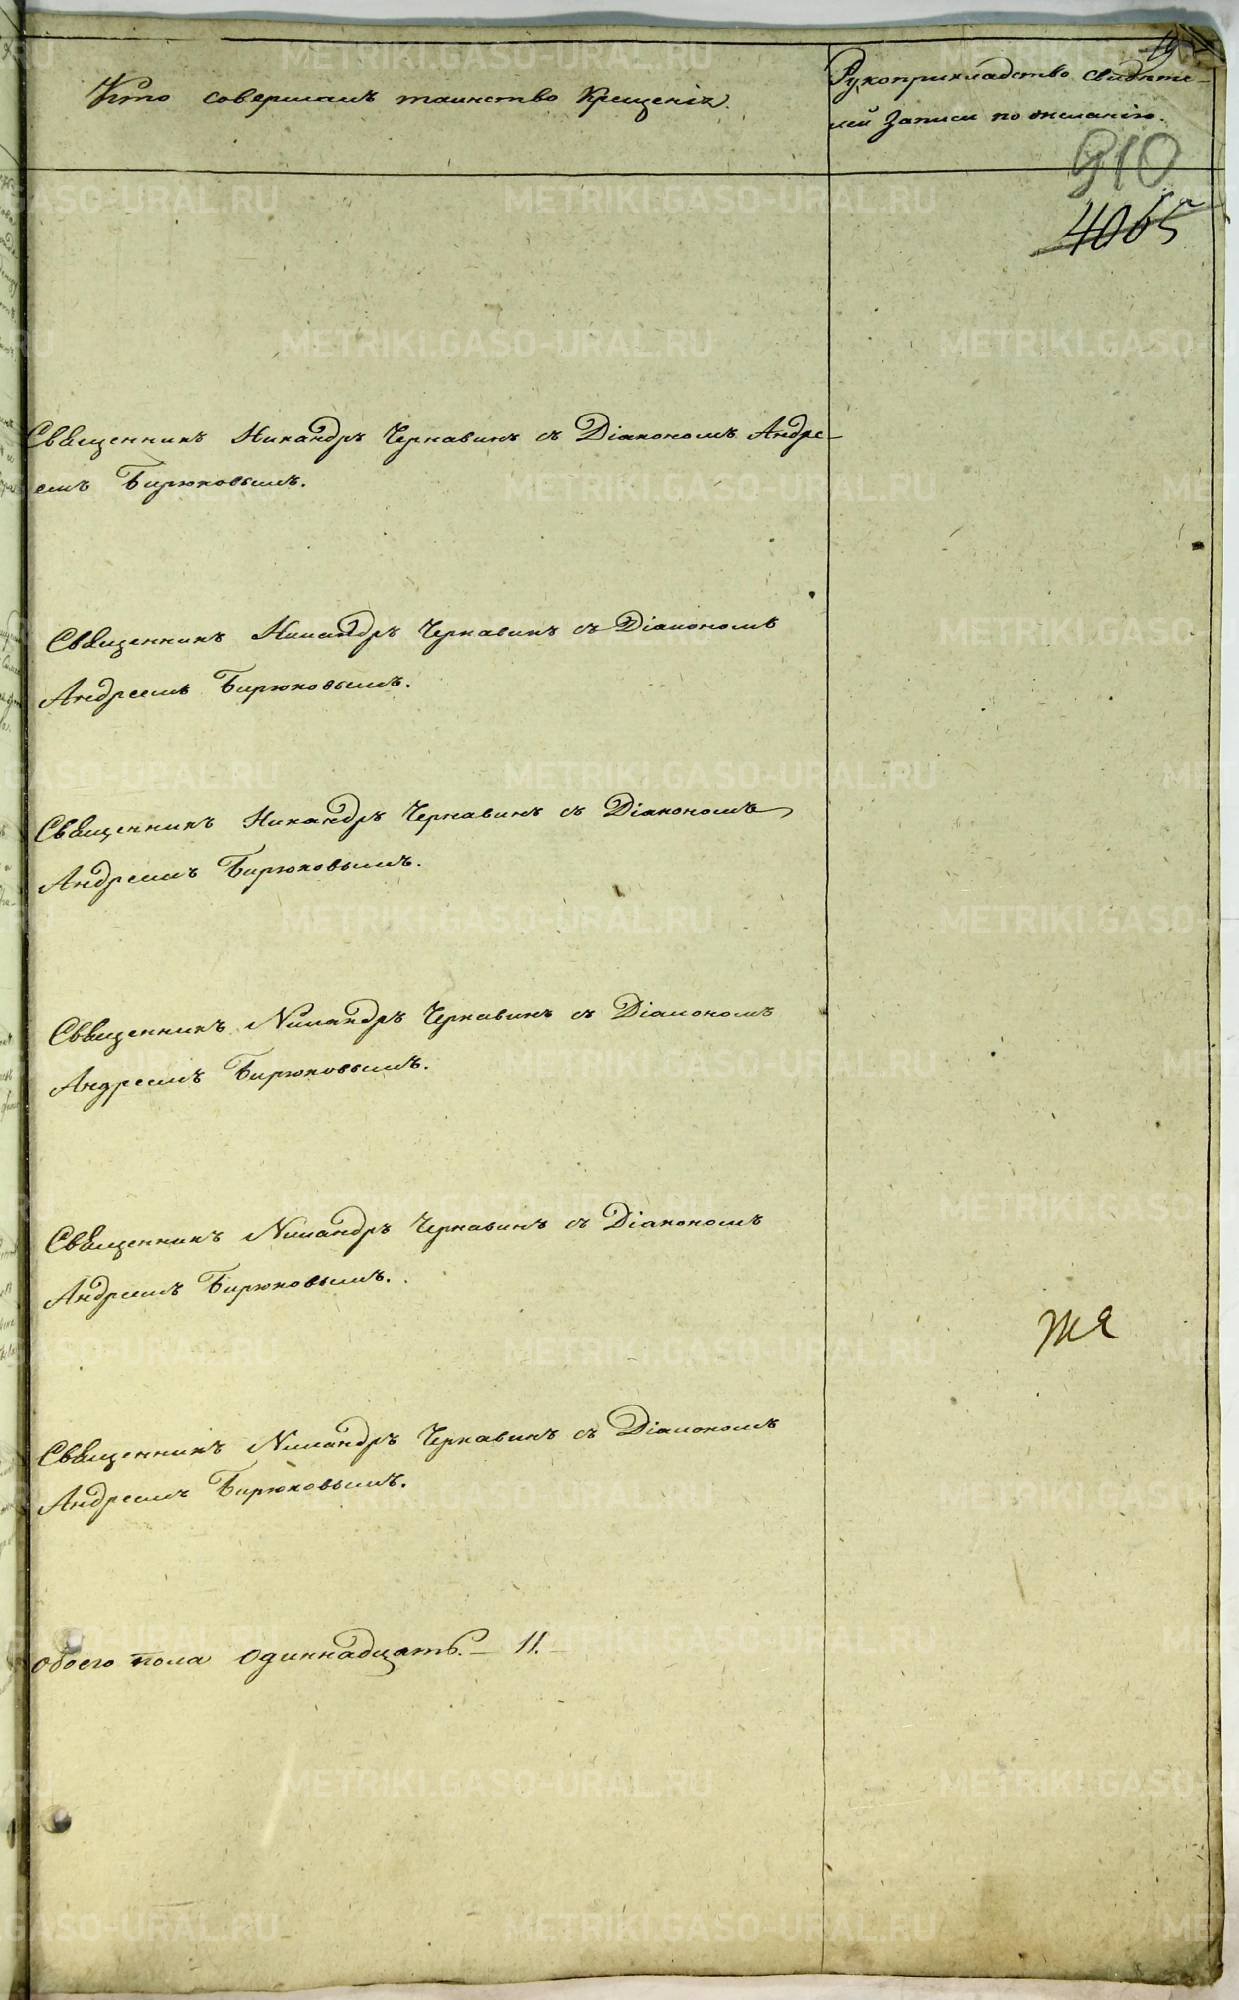 Кто совершалъ таинство Крещенія.
Рукоприкладство свидѣте-
лей записи по желанію.
910
4065
Священникъ Никандръ Чернавинъ съ Діакономъ Андре-
емъ Бирюковымъ.
Священникъ Никандръ Чернавинъ съ Діакономъ
Андреемъ Бирюковымъ.
Священникъ Никандръ Чернавинъ съ Діакономъ
Андреемъ Бирюковымъ.
Священникъ Никандръ Чернавинъ съ Діакономъ
Андреемъ Бирюковымъ.
Священникъ Никандръ Чернавинъ съ Діакономъ
Андреемъ Бирюковымъ.
Священникъ Никандръ Чернавинъ съ Діакономъ
Андреемъ Бирюковымъ.
обоего пола одиннадцать. — 11. —
METRIKI.GASO-URAL.RU